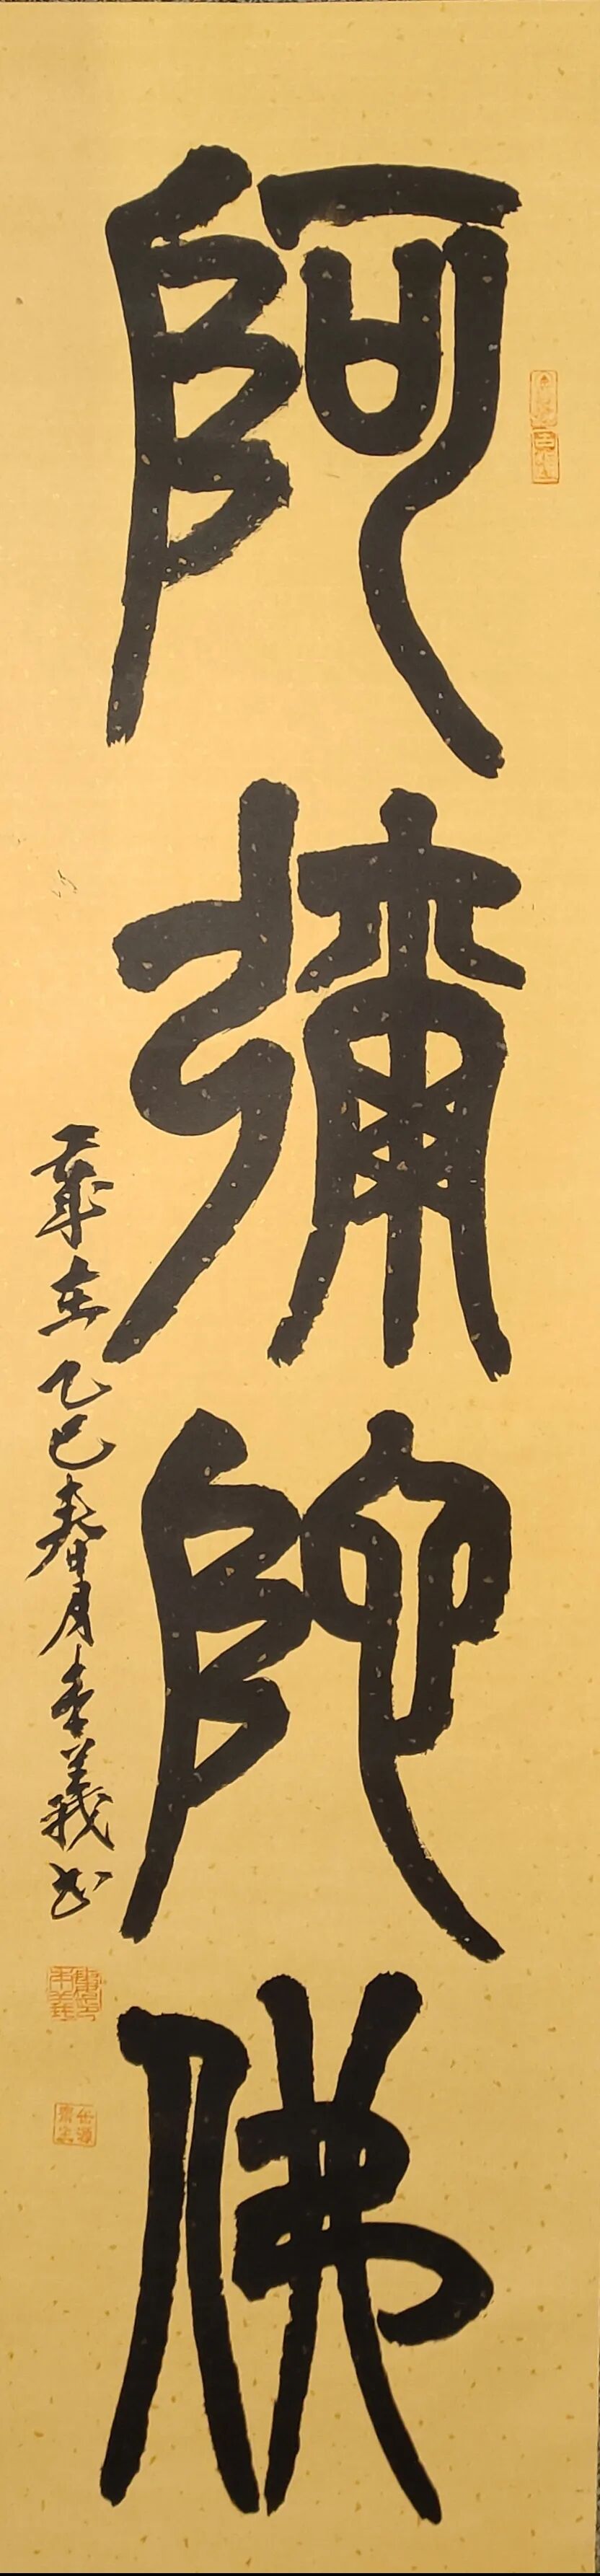 阿彌陀佛
歲在乙巳春月李義書